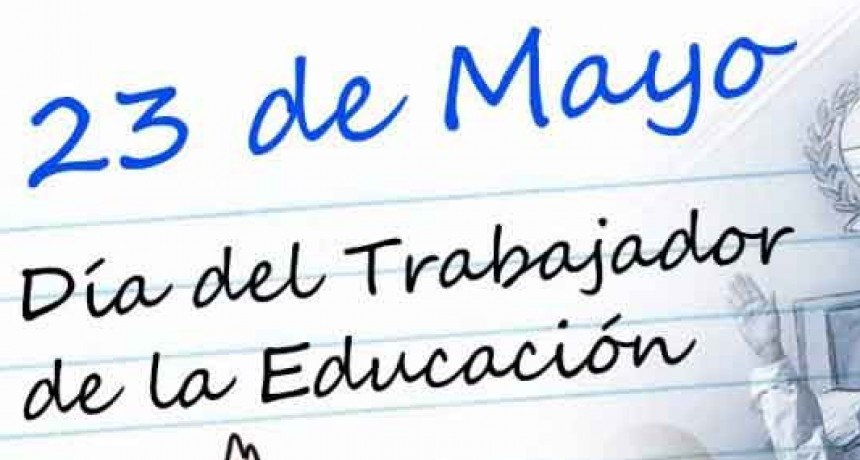 23 de Mayo
Día del Trabajador
de la Educación